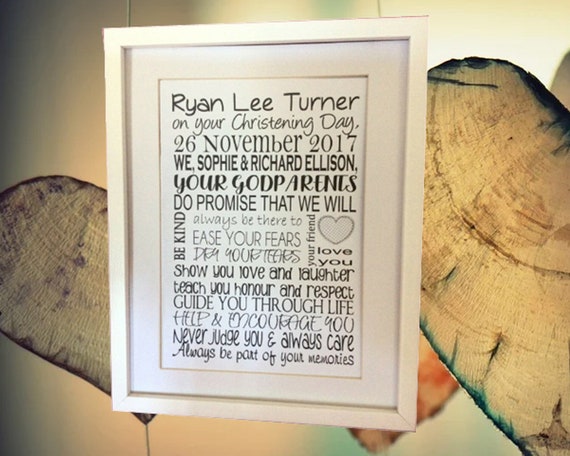 Ryan Lee Turner
on your Christening Day,
26 November 2017
WE, SOPHIE & RICHARD ELLISON,
YOUR GODPARENTS
DO PROMISE THAT WE WILL
BE KIND
always be there to
EASE YOUR FEARS
DRY YOUR TEERS
your friend
love
you
Show you love and laughter
teach you honour and respect
GUIDE YOU THROUGH LIFE
HELP & ENCOURAGE YOU
Never judge you & always care
Always be part of your memories